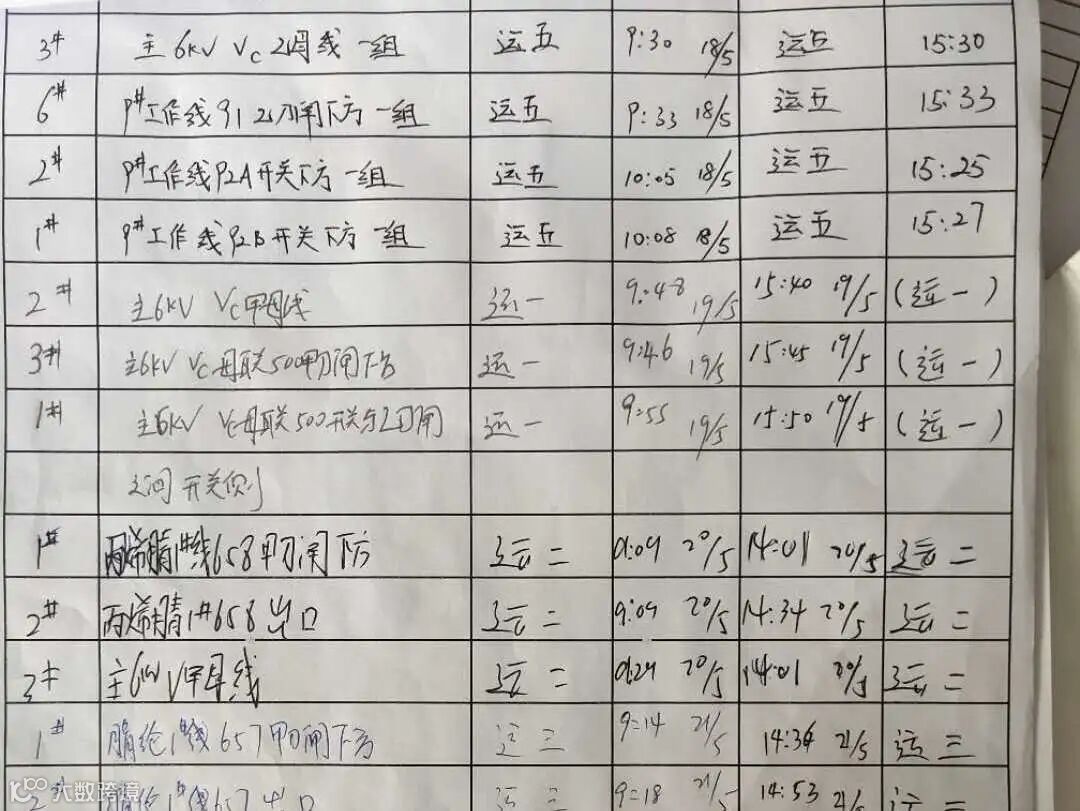 3# 主6kV Vc乙母线一组 运五 9:30 18/5 运五 15:30
6# 9#工作线912刀闸下方一组 运五 9:33 18/5 运五 15:33
2# 9#工作线92A开关下方一组 运五 10:05 18/5 运五 15:25
1# 9#工作线92B开关下方一组 运五 10:08 18/5 运五 15:27
2# 主6kV Vc甲母线 运一 9:48 19/5 15:40 19/5 (运一)
3# 主6kV Vc母联500甲刀闸下方 运一 9:46 19/5 15:45 19/5 (运一)
1# 主6kV Vc母联500开关与乙刀闸 运一 9:55 19/5 15:50 19/5 (运一)
之间开关侧
1# 丙烯腈1#线658甲刀闸下方 运二 9:09 20/5 14:01 20/5 运二
2# 丙烯腈1#658出口 运二 9:09 20/5 14:34 20/5 运二
3# 主6kV V甲母线 运二 9:29 20/5 14:01 20/5 运二
1# 腈纶1#线657甲刀闸下方 运三 9:14 21/5 14:34 21/5 运三
2# 腈纶1#线657出口 运三 9:18 21/5 14:53 21/5 运三
大数跨境